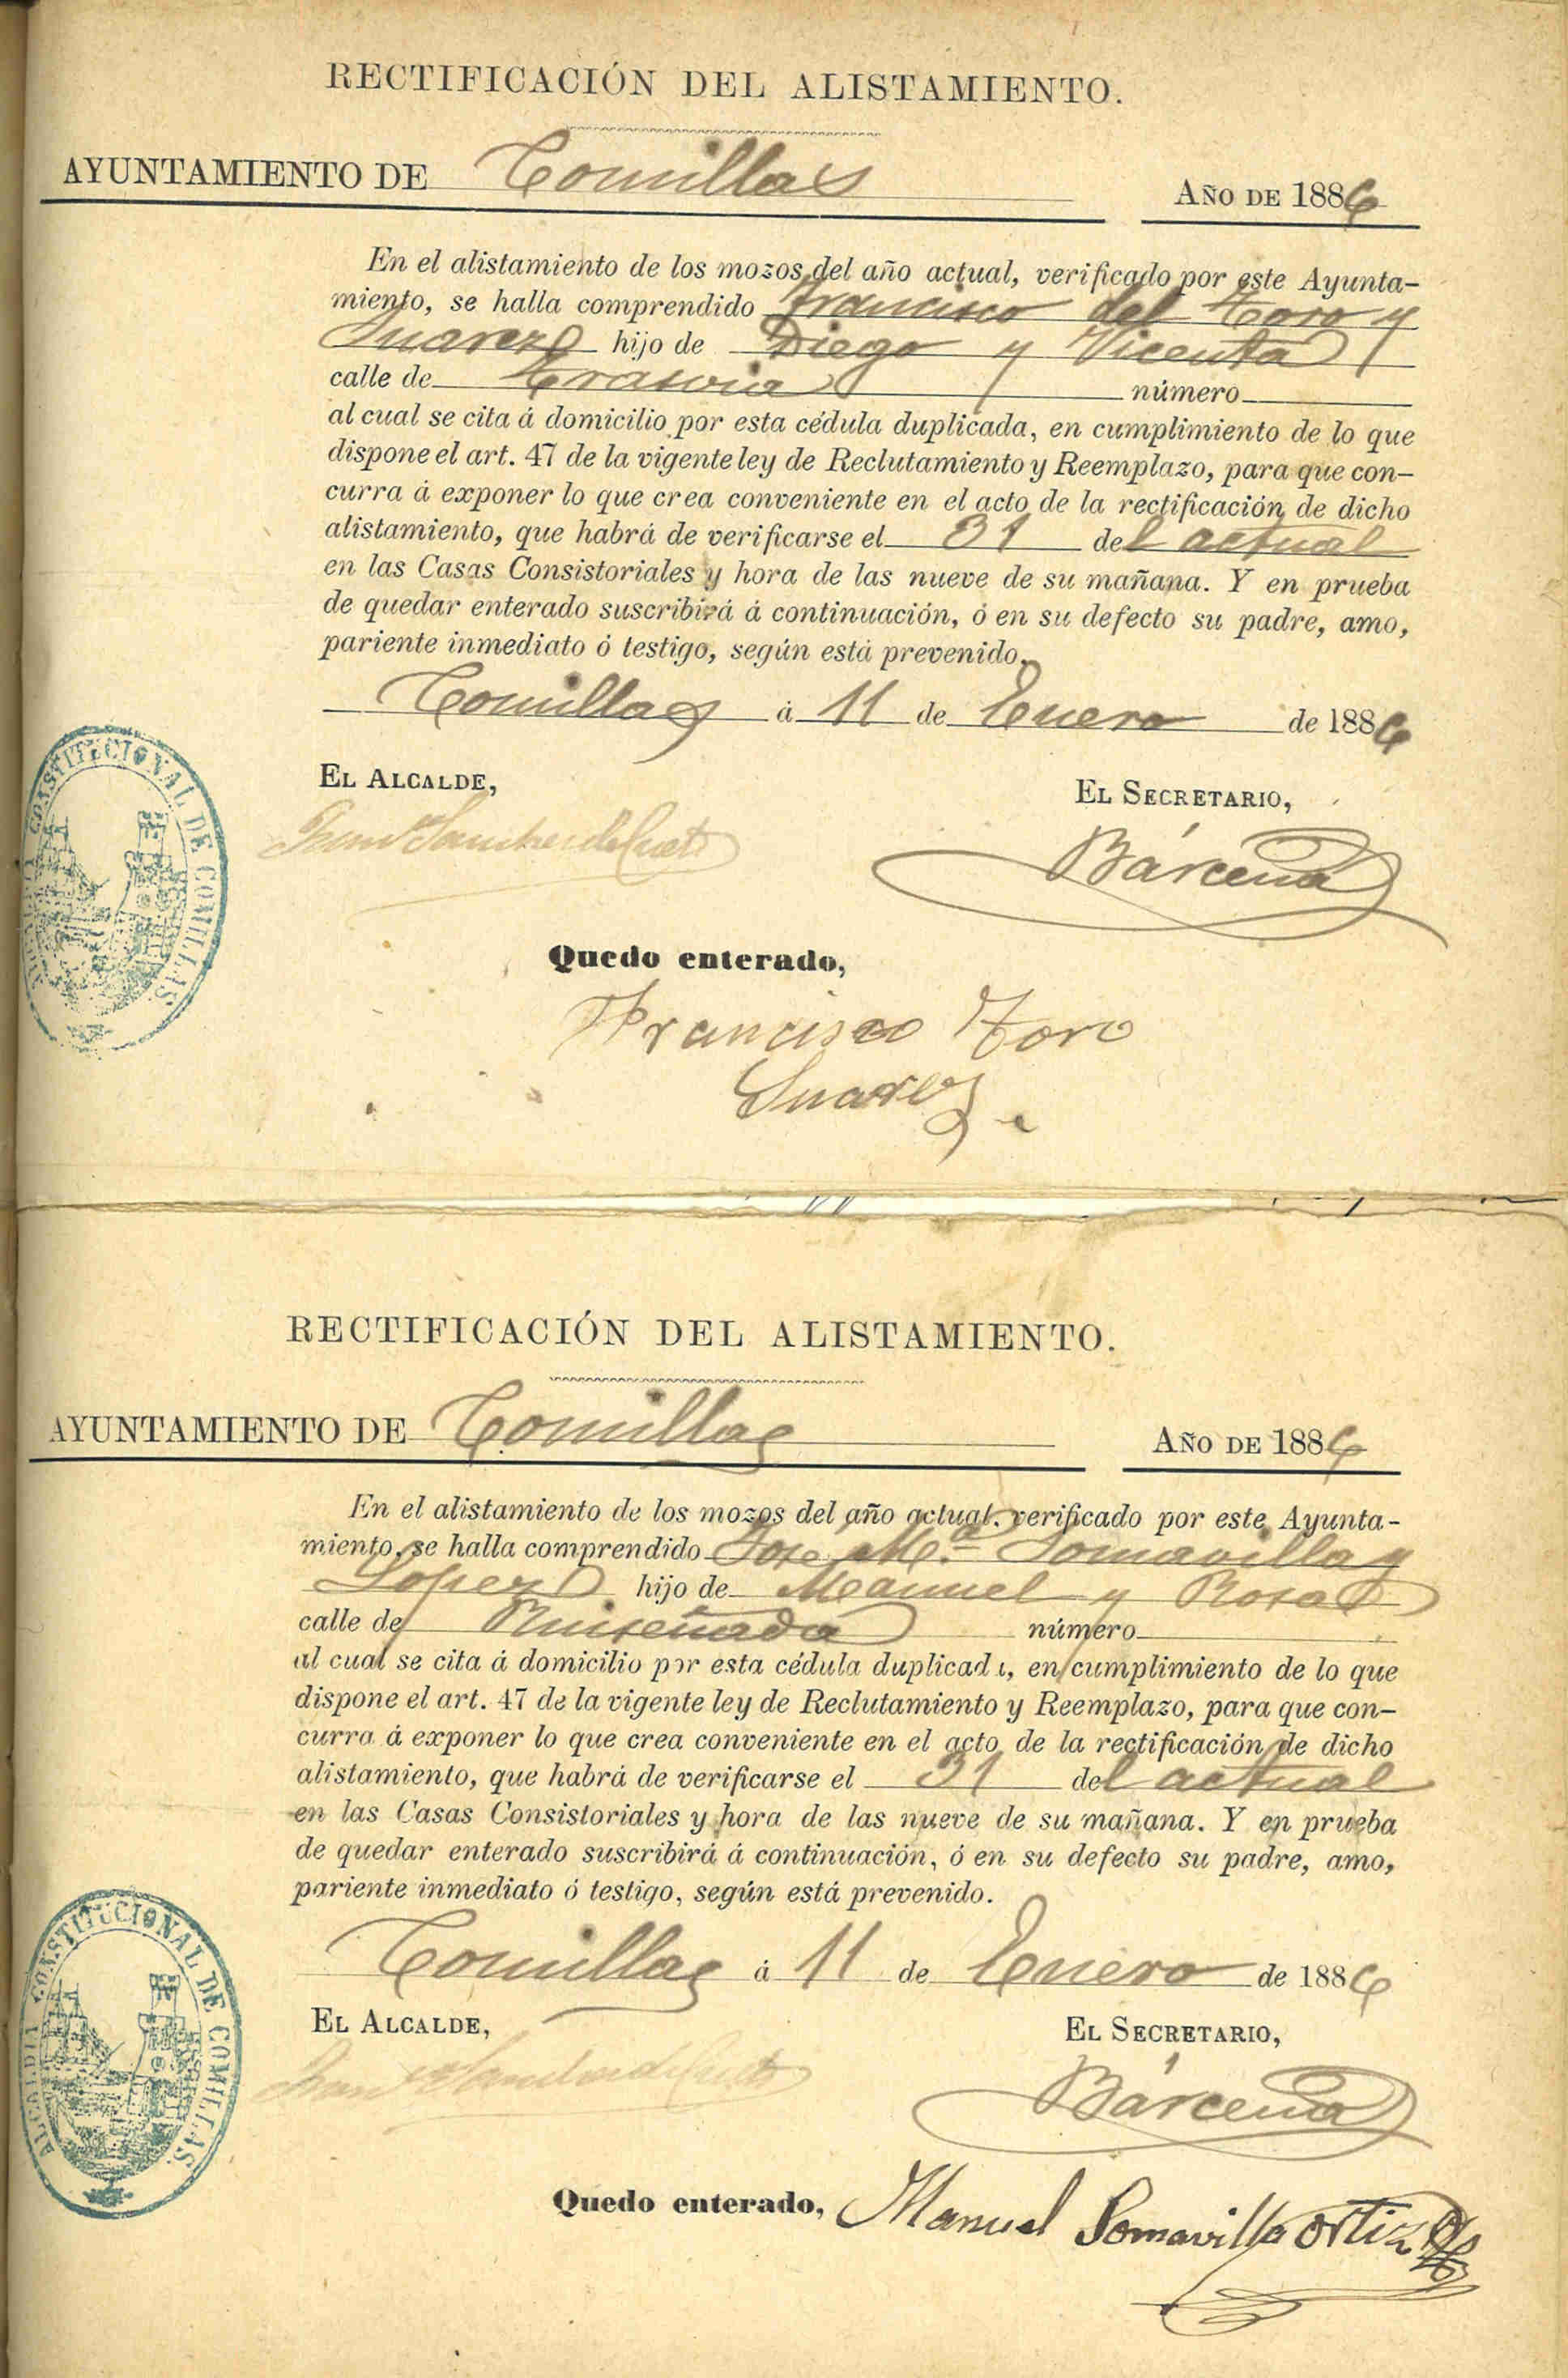 RECTIFICACIÓN DEL ALISTAMIENTO.
AYUNTAMIENTO DE Comillas
AÑO DE 1886
En el alistamiento de los mozos del año actual, verificado por este Ayunta-
miento, se halla comprendido Francisco del Toro y
Suarez hijo de Diego y Vicenta
calle de Trasvia número
al cual se cita á domicilio por esta cédula duplicada, en cumplimiento de lo que
dispone el art. 47 de la vigente ley de Reclutamiento y Reemplazo, para que con-
curra á exponer lo que crea conveniente en el acto de la rectificación de dicho
alistamiento, que habrá de verificarse el 31 del actual
en las Casas Consistoriales y hora de las nueve de su mañana. Y en prueba
de quedar enterado suscribirá á continuación, ó en su defecto su padre, amo,
pariente inmediato ó testigo, según está prevenido.
Comillas á 11 de Enero de 1886
EL ALCALDE,
EL SECRETARIO,
Sanchez de Cueto
Bárcena
CONSTITUCIONAL DE COMILLAS
Quedo enterado,
Francisco Toro
Suarez
RECTIFICACIÓN DEL ALISTAMIENTO.
AYUNTAMIENTO DE Comillas
AÑO DE 1886
En el alistamiento de los mozos del año actual, verificado por este Ayunta-
miento, se halla comprendido Jose M.ª Somavilla y
Lopez hijo de Manuel y Rosa
calle de Ruiseñada número
al cual se cita á domicilio por esta cédula duplicada, en cumplimiento de lo que
dispone el art. 47 de la vigente ley de Reclutamiento y Reemplazo, para que con-
curra á exponer lo que crea conveniente en el acto de la rectificación de dicho
alistamiento, que habrá de verificarse el 31 del actual
en las Casas Consistoriales y hora de las nueve de su mañana. Y en prueba
de quedar enterado suscribirá á continuación, ó en su defecto su padre, amo,
pariente inmediato ó testigo, según está prevenido.
Comillas á 11 de Enero de 1886
EL ALCALDE,
EL SECRETARIO,
Sanchez de Cueto
Bárcena
ALCALDIA CONSTITUCIONAL DE COMILLAS
Quedo enterado, Manuel Somavilla Ortiz